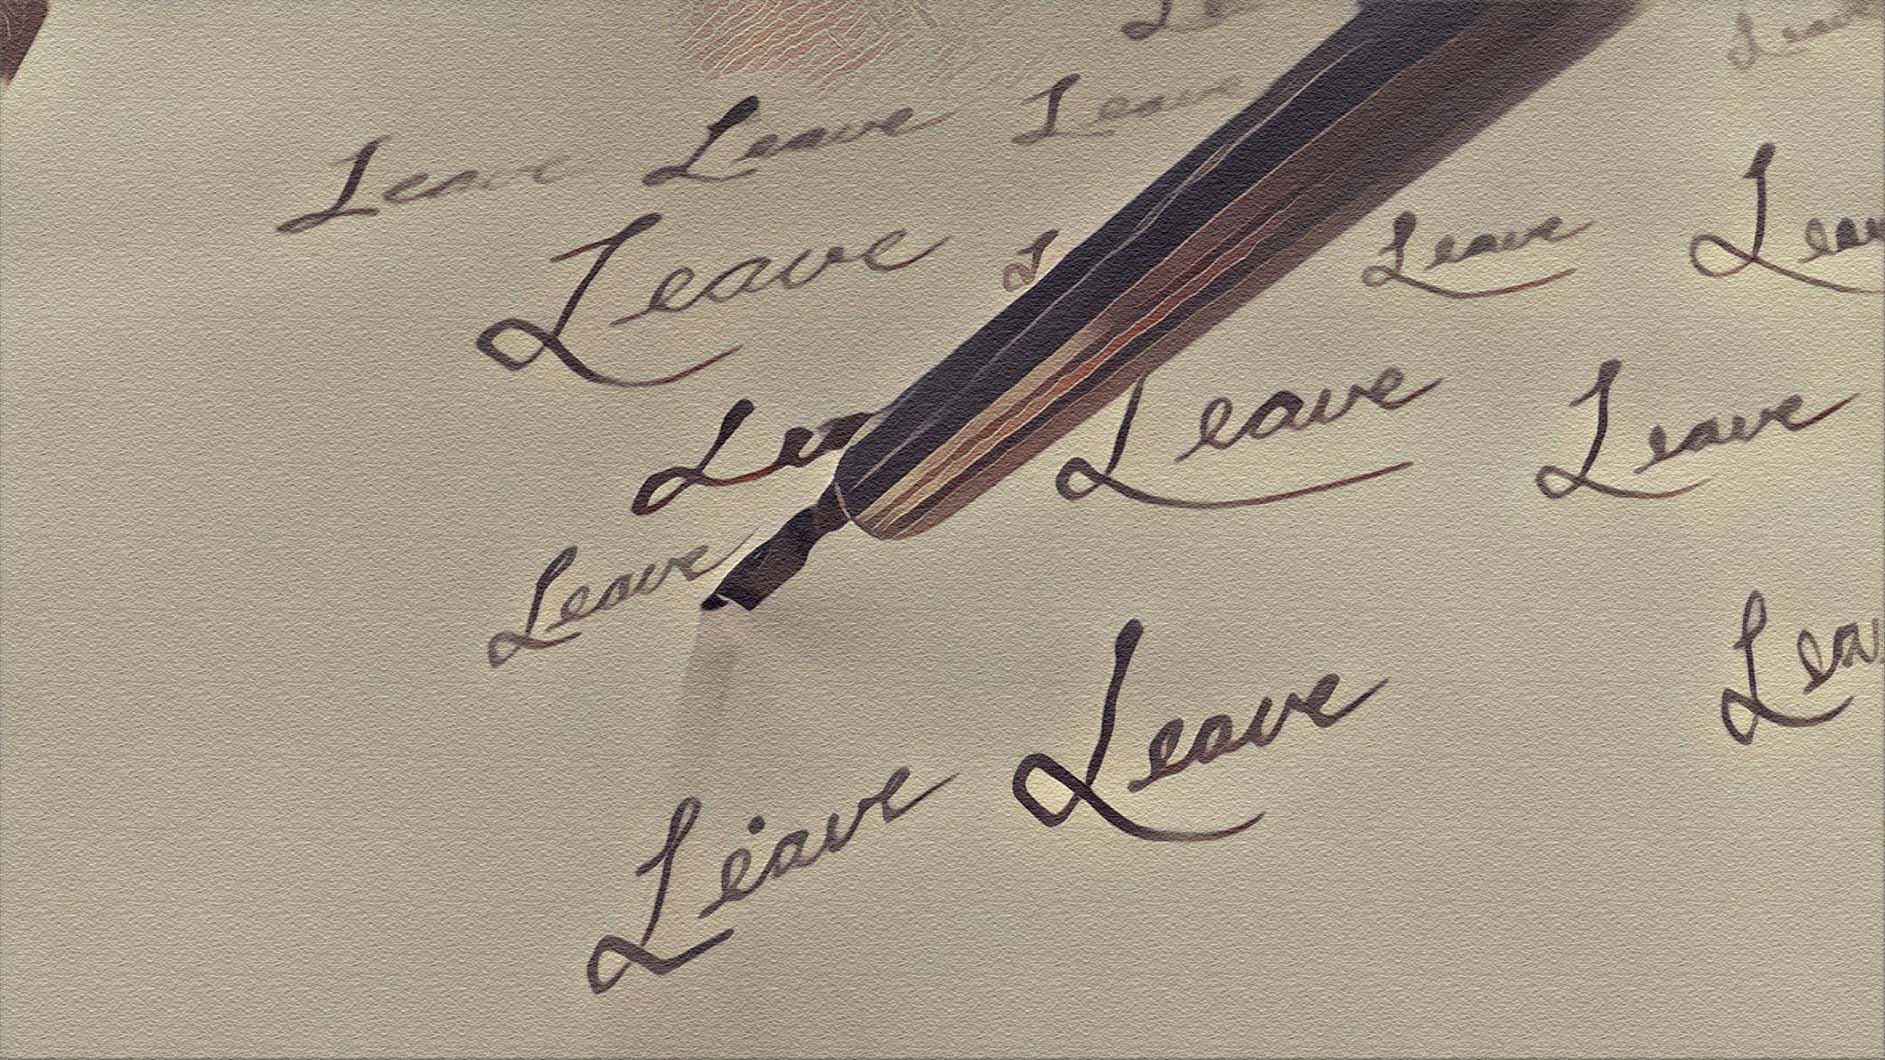 Le Leave
Leave Leave Leave
Leave L Leave Leav
Lea Leave Leave
Leave
Leave Lea
Leave